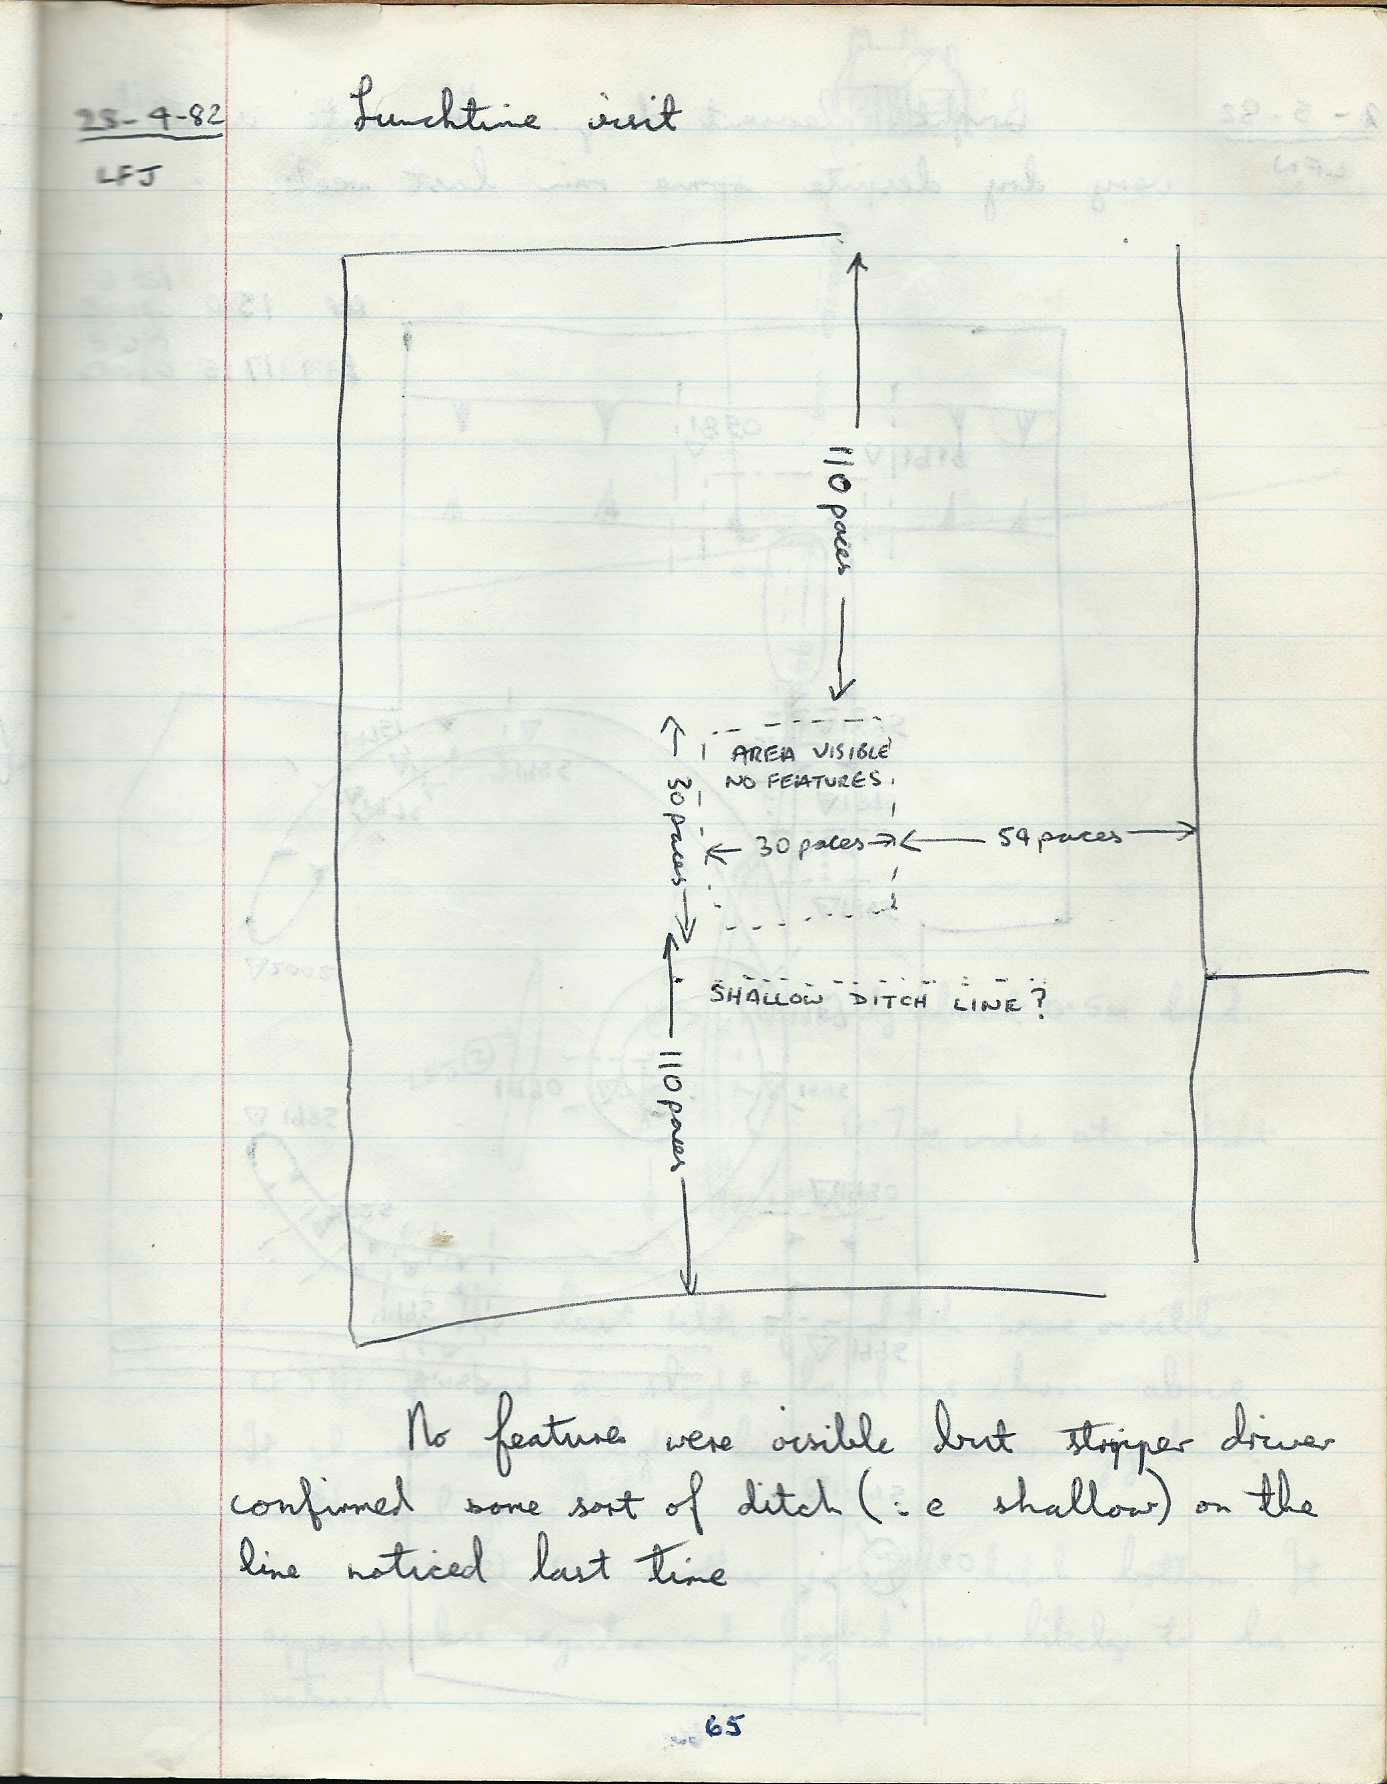 28-4-82 Lunchtime visit
LFJ
110 paces
AREA VISIBLE
NO FEATURES
30 paces
30 paces
54 paces
SHALLOW DITCH LINE?
110 paces
No features were visible but stripper driver
confirmed some sort of ditch (i.e shallow) on the
line noticed last time
65